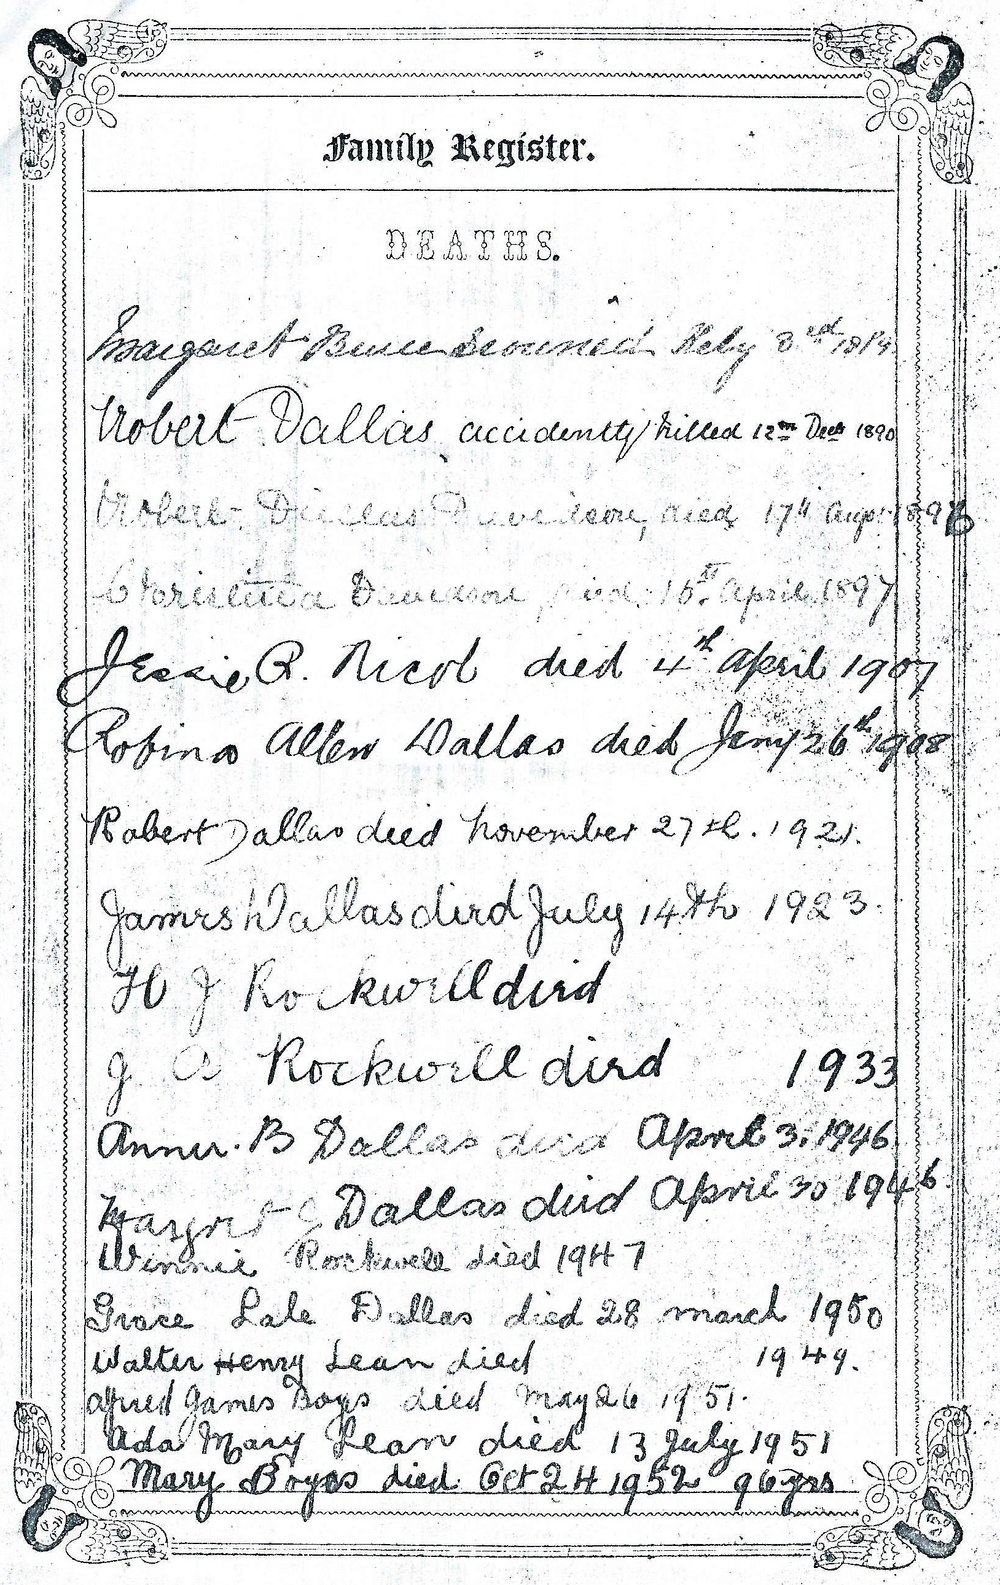 Family Register.
DEATHS.
Margaret Bruce drowned Feby 3rd
Robert Dallas accidently killed 12th Decr 1890
Robert Dallas Davidson, died 17th Augt 1896
Davidson, died 15th April 1897
Jessie R. Nicol died 4th April 1907
Robina Allen Dallas died Jany 26th 1908
Robert Dallas died November 27th. 1921.
James Dallas died July 14th 1923.
H J Rockwell died
J A Rockwell died 1933
Annie. B Dallas died April 3. 1946.
Margret J Dallas died April 30 1946.
Winnie Rockwell died 1947
Grace Lale Dallas died 28 march 1950
Walter Henry Lean died 1949.
Alfred James Boys died May 26 1951.
Ada Mary Lean died 13 July 1951
Mary Boyes died Oct 24 1952 96 yrs